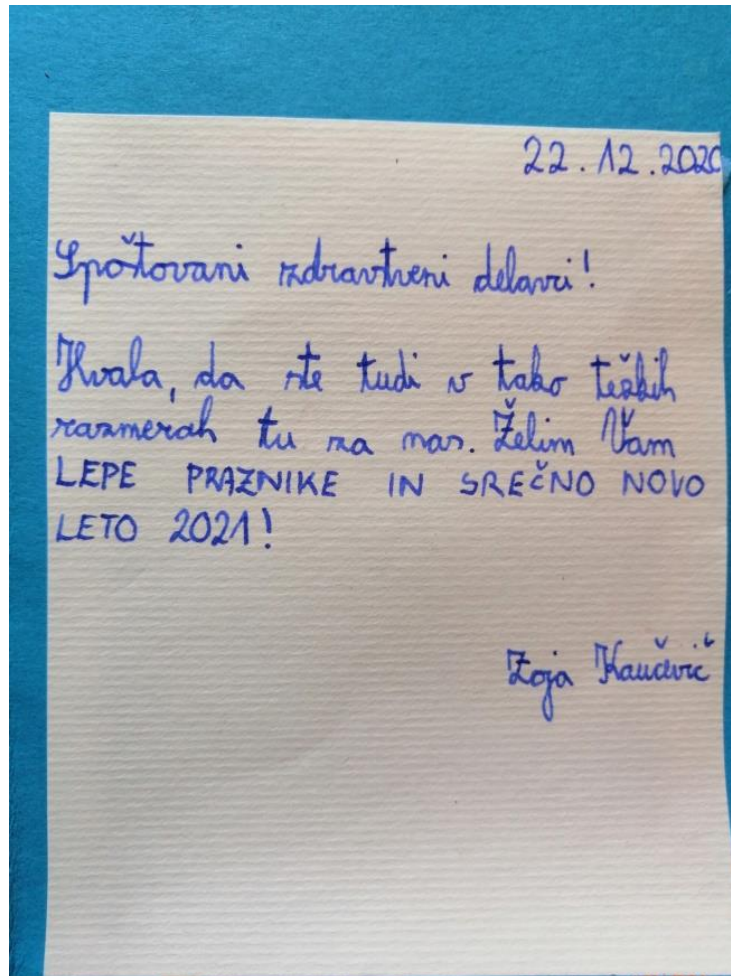 22.12.2020
Spoštovani zdravstveni delavci!
Hvala, da ste tudi v tako težkih
razmerah tu za nas. Želim Vam
LEPE PRAZNIKE IN SREČNO NOVO
LETO 2021!
Zoja Kaučevič